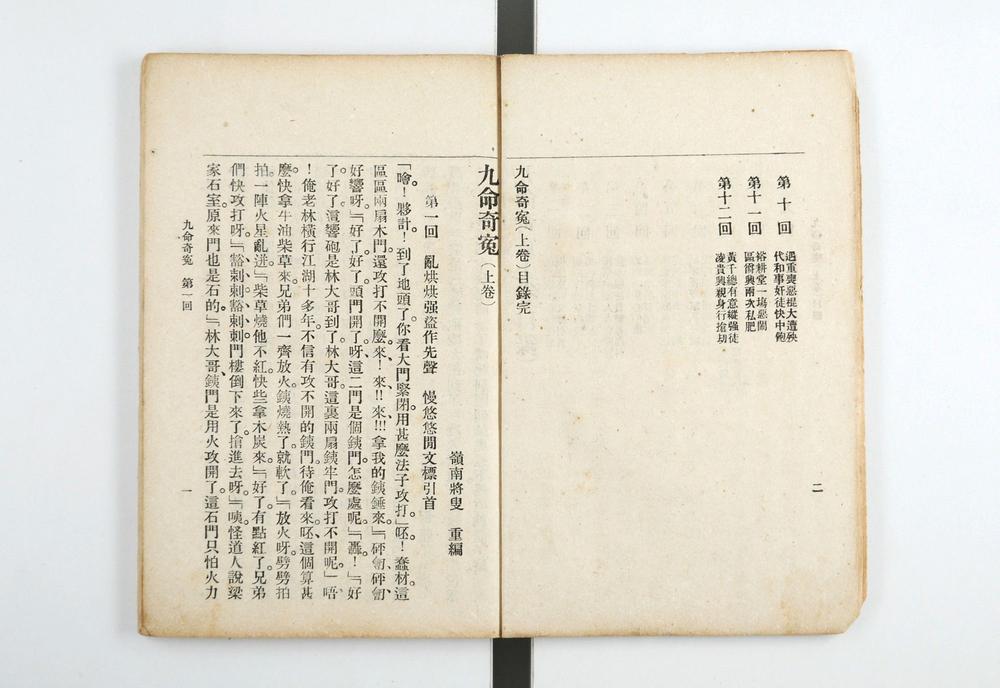 第十回　遇重喪惡棍大遭殃
代和事奸徒快中飽
第十一回　裕耕堂一塲惡鬧
區爵興兩次私肥
第十二回　黃千總有意縱強徒
凌貴興親身行搶刧
九命奇寃（上卷）目錄完
二
九命奇寃（上卷）
嶺南將叟　重編
第一回　亂烘烘强盜作先聲　慢悠悠閒文標引首
「噲！夥計！到了地頭了。你看大門緊閉。用甚麼法子攻打。」「呸！蠢材。這
區區兩扇木門。還攻打不開麼。來！來!!來!!!拿我的銕錘來。」「砰訇、砰訇、
好響呀。」「好了好了。頭門開了呀。這二門是個銕門。怎麼處呢。」「轟！」「好
了好了。這響砲是林大哥到了。林大哥。這裏兩扇銕牢門。攻打不開呢。」「唔
！俺老林橫行江湖十多年。不信有攻不開的銕門。待俺看來。呸。這個算甚
麼。快拿牛油柴草來。兄弟們一齊放火。銕燒熱了。就軟了。」「放火呀。劈劈拍
拍。一陣火星亂迸。」「柴草燒他不紅。快些拿木炭來。」「好了。有點紅了。兄弟
們快攻打呀。」「豁剌剌、豁剌剌、門樓倒下來了。搶進去呀。」「咦。怪道人說梁
家石室。原來門也是石的。」「林大哥。銕門是用火攻開了。這石門只怕火力
九命奇寃　第一回
一